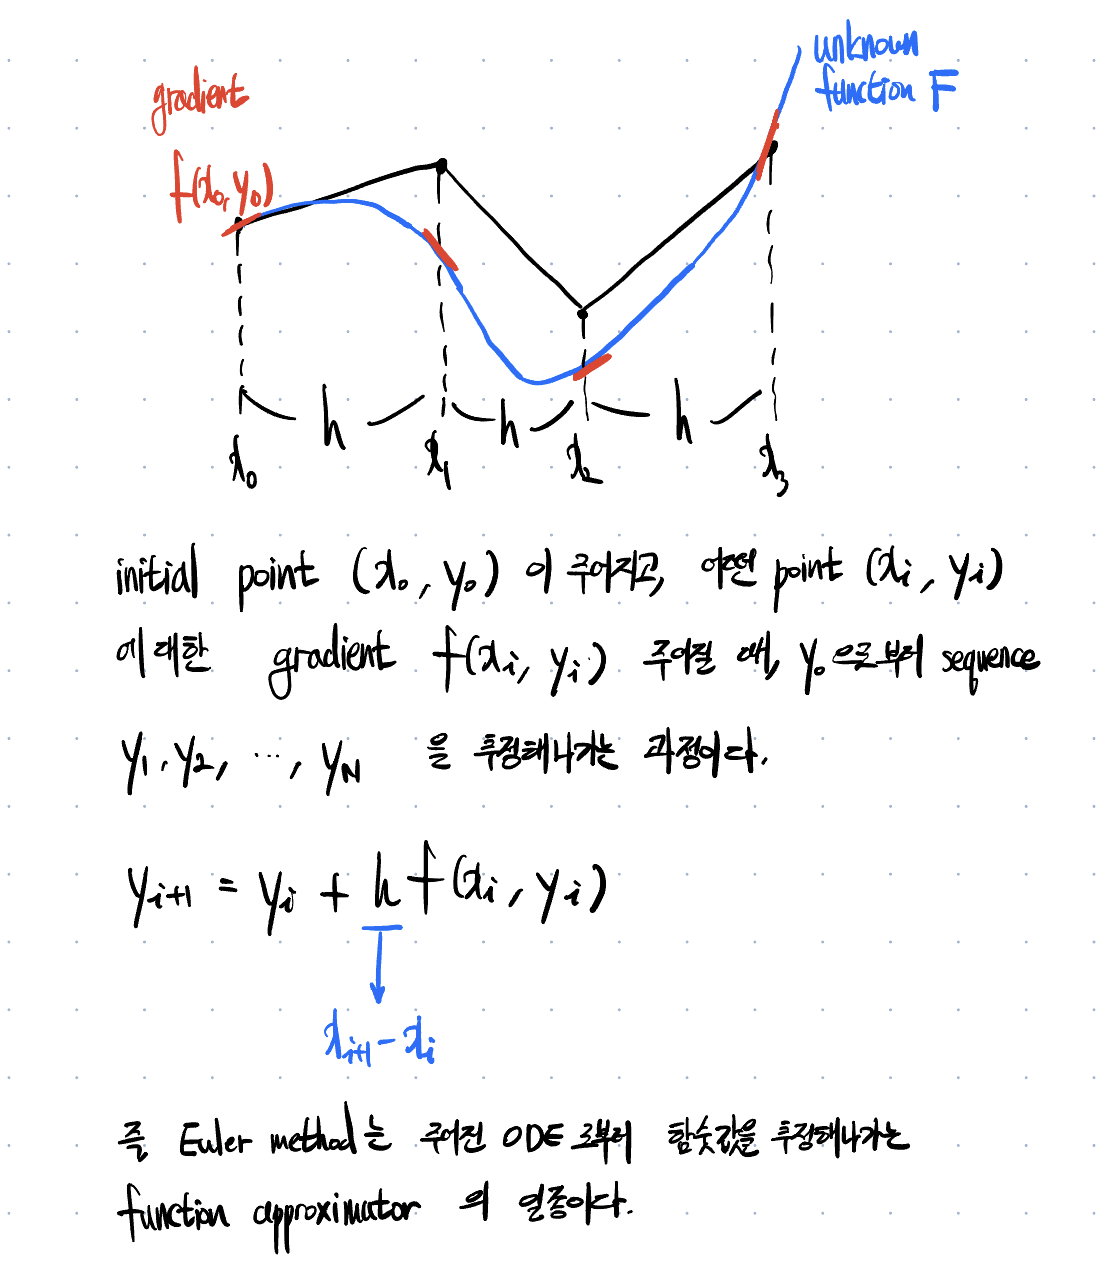 unknown
function F
gradient
f(x₀, y₀)
h h h
x₀ x₁ x₂ x₃
initial point (x₀, y₀) 이 주어지고, 어떤 point (xᵢ, yᵢ)
에 대한 gradient f(xᵢ, yᵢ) 주어질 때, y₀으로부터 sequence
y₁, y₂, ⋯, y_N 을 추정해나가는 과정이다.
yᵢ₊₁ = yᵢ + h f(xᵢ, yᵢ)
xᵢ₊₁ - xᵢ
즉 Euler method는 주어진 ODE로부터 함숫값을 추정해나가는
function approximator 의 일종이다.